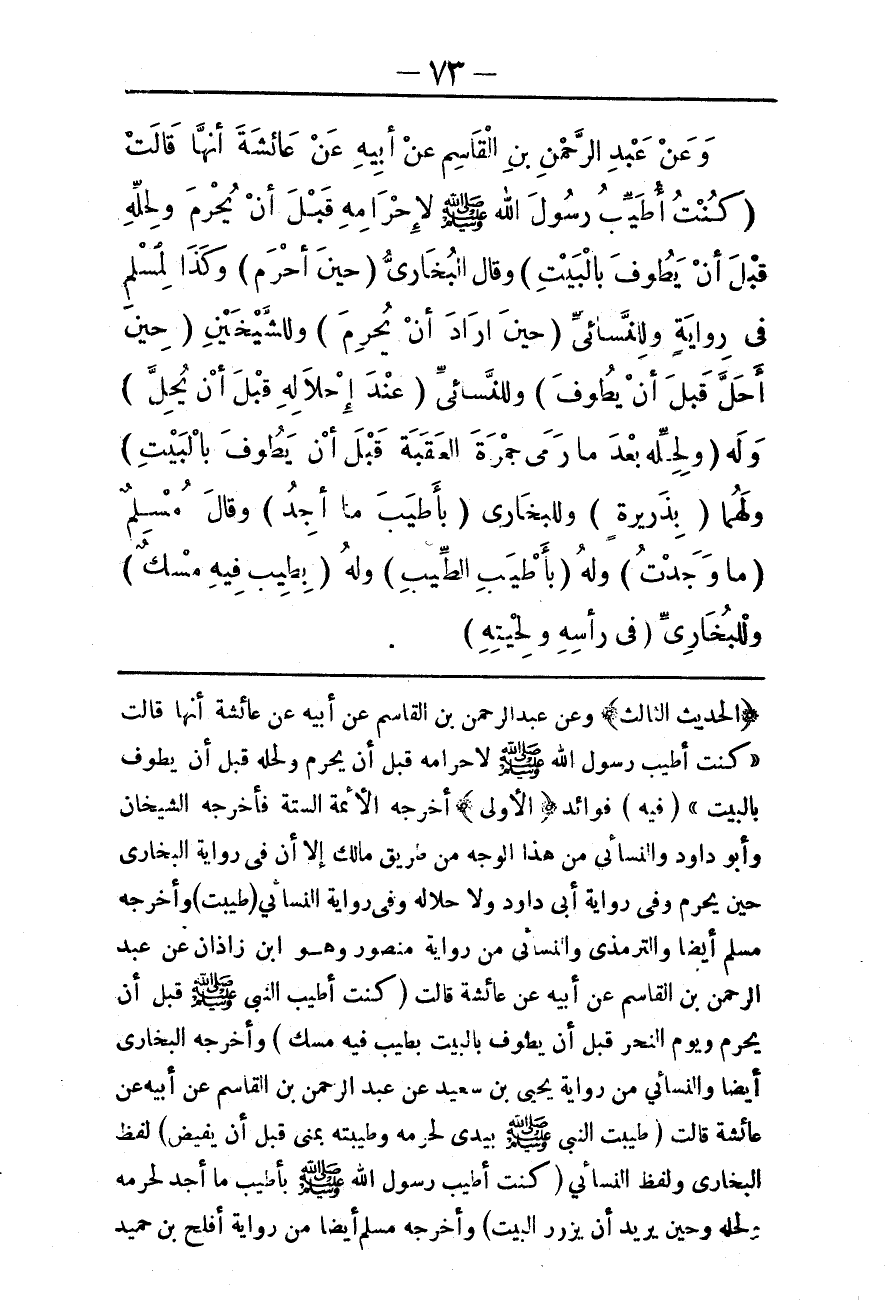 — ٧٣ —
وَعَنْ عَبْدِ الرَّحْمٰنِ بنِ الْقَاسِمِ عنْ أبِيهِ عَنْ عَائشَةَ أنهَّا قَالَتْ
(كُنْتُ أُطَيِّبُ رسُولَ الله ﷺ لإِحْرَامِهِ قَبْلَ أنْ يُحْرِمَ ولحِلِّهِ
قبْلَ أنْ يَطُوفَ بالْبَيْتِ) وقال البُخَارىُّ (حينَ أحْرَم) وكَذَا لِمُسْلمٍ
فى رِوايَةٍ وللِنَّسائىِّ (حينَ ارَادَ أنْ يُحرِمَ) وللشَّيْخَيْنِ (حِينَ
أَحَلَّ قَبلَ أنْ يطُوفَ) وللنَّسائىِّ (عنْدَ إِحْلاَلِهِ قبْلَ أنْ يُحِلَّ)
وَلَه (ولحِلِّه بعْدَ ما رَمَى جمْرَةَ العَقَبَةِ قَبْلَ أنْ يَطُوفَ بالْبَيْتِ)
ولَهُما (بِذَرِيرةٍ) وللبخَارى (بأَطيَبَ ما أجِدُ) وقالَ مُسْلِمٌ
(ما وَجَدْتُ) ولهُ (بأَطْيَبِ الطِّيبِ) ولهُ (بِطِيبٍ فيهِ مسْكٌ)
وللْبُخَارِىِّ (فى رأسِهِ ولِحْيتِهِ)
﴿الحديث الثالث﴾ وعن عبدالرحمن بن القاسم عن أبيه عن عائشة أنها قالت
«كنت أطيب رسول الله ﷺ لاحرامه قبل أن يحرم ولحله قبل أن يطوف
بالبيت» (فيه) فوائد ﴿الأولى﴾ أخرجه الأئمة الستة فأخرجه الشيخان
وأبو داود والنسائي من هذا الوجه من طريق مالك إلا أن فى رواية البخارى
حين يحرم وفى رواية أبى داود ولاحلاله وفى رواية النسائي (طيبت) وأخرجه
مسلم أيضا والترمذى والنسائى من رواية منصور وهو ابن زاذان عن عبد
الرحمن بن القاسم عن أبيه عن عائشة قالت (كنت أطيب النبى ﷺ قبل أن
يحرم ويوم النحر قبل أن يطوف بالبيت بطيب فيه مسك) وأخرجه البخارى
أيضا والنسائي من رواية يحيى بن سعيد عن عبد الرحمن بن القاسم عن أبيه عن
عائشة قالت (طيبت النبى ﷺ بيدى لحرمه وطيبته بمنى قبل أن يفيض) لفظ
البخارى ولفظ النسائي (كنت أطيب رسول الله ﷺ بأطيب ما أجد لحرمه
ولحله وحين يريد أن يزور البيت) وأخرجه مسلم أيضا من رواية أفلح بن حميد